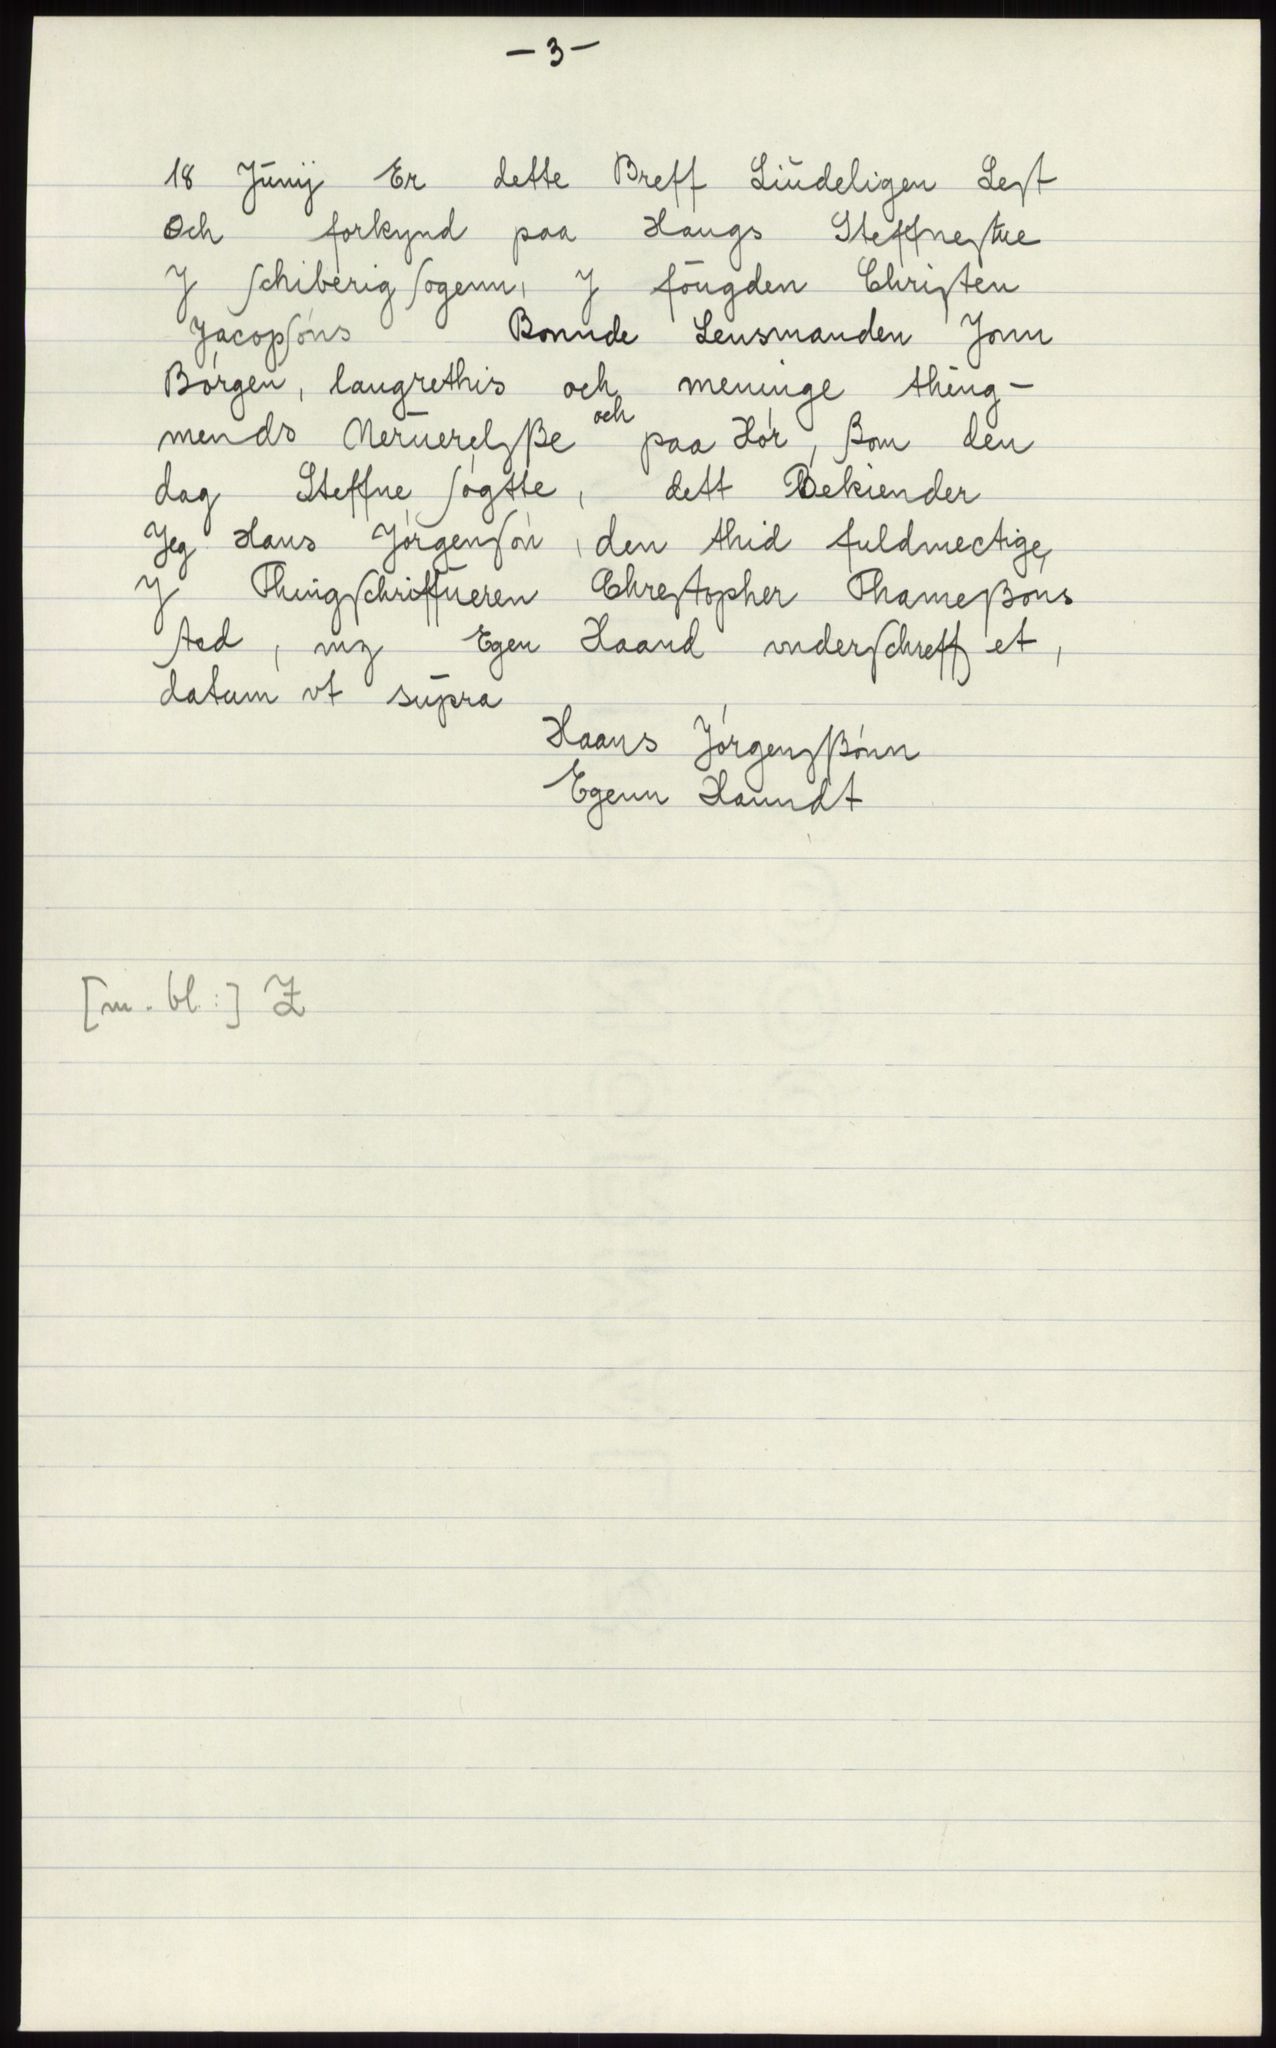 - 3 -
18 Jŭnij Er dette Breff Liŭdeligen Lest
Och forkynd paa Haŭgs Steffnestue
J schiberig sogenn, J foŭgden Christen
Jacopsóns Bonnde Lensmanden Jonn
Börgen, laugrethis och meninge thing-
mends Nerŭerelsße och paa Hór, ßom den
dag Steffne sögtte, dett Bekiender
Jeg Hans Jörgensón, den thid fuldmectige,
J Thingschriffŭeren Chrestopher Thameßóns
sted, mz Egen Haand vnderschreff et,
datum vt sŭpra
Haans Jórgensßónn
Egenn Hanndt
[m. bl.:] Z